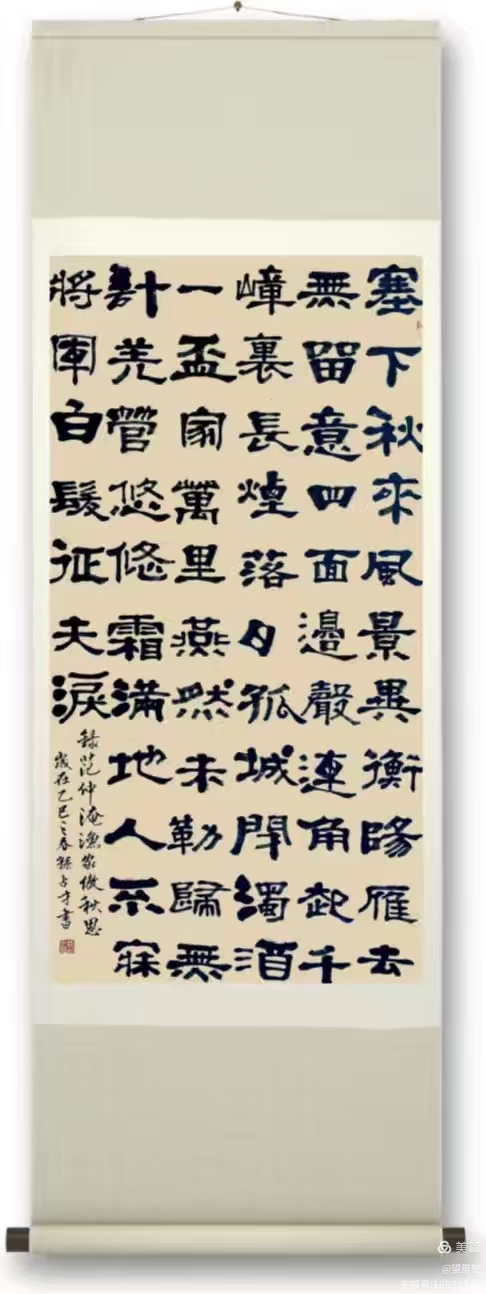 塞下秋來風景異衡陽雁去
無留意四面邊聲連角起千
嶂裏長煙落日孤城閉濁酒
一盃家萬里燕然未勒歸無
計羌管悠悠霜滿地人不寐
將軍白髮征夫淚
錄范仲淹漁家傲秋思
歲在乙巳之春孫占才書
美篇